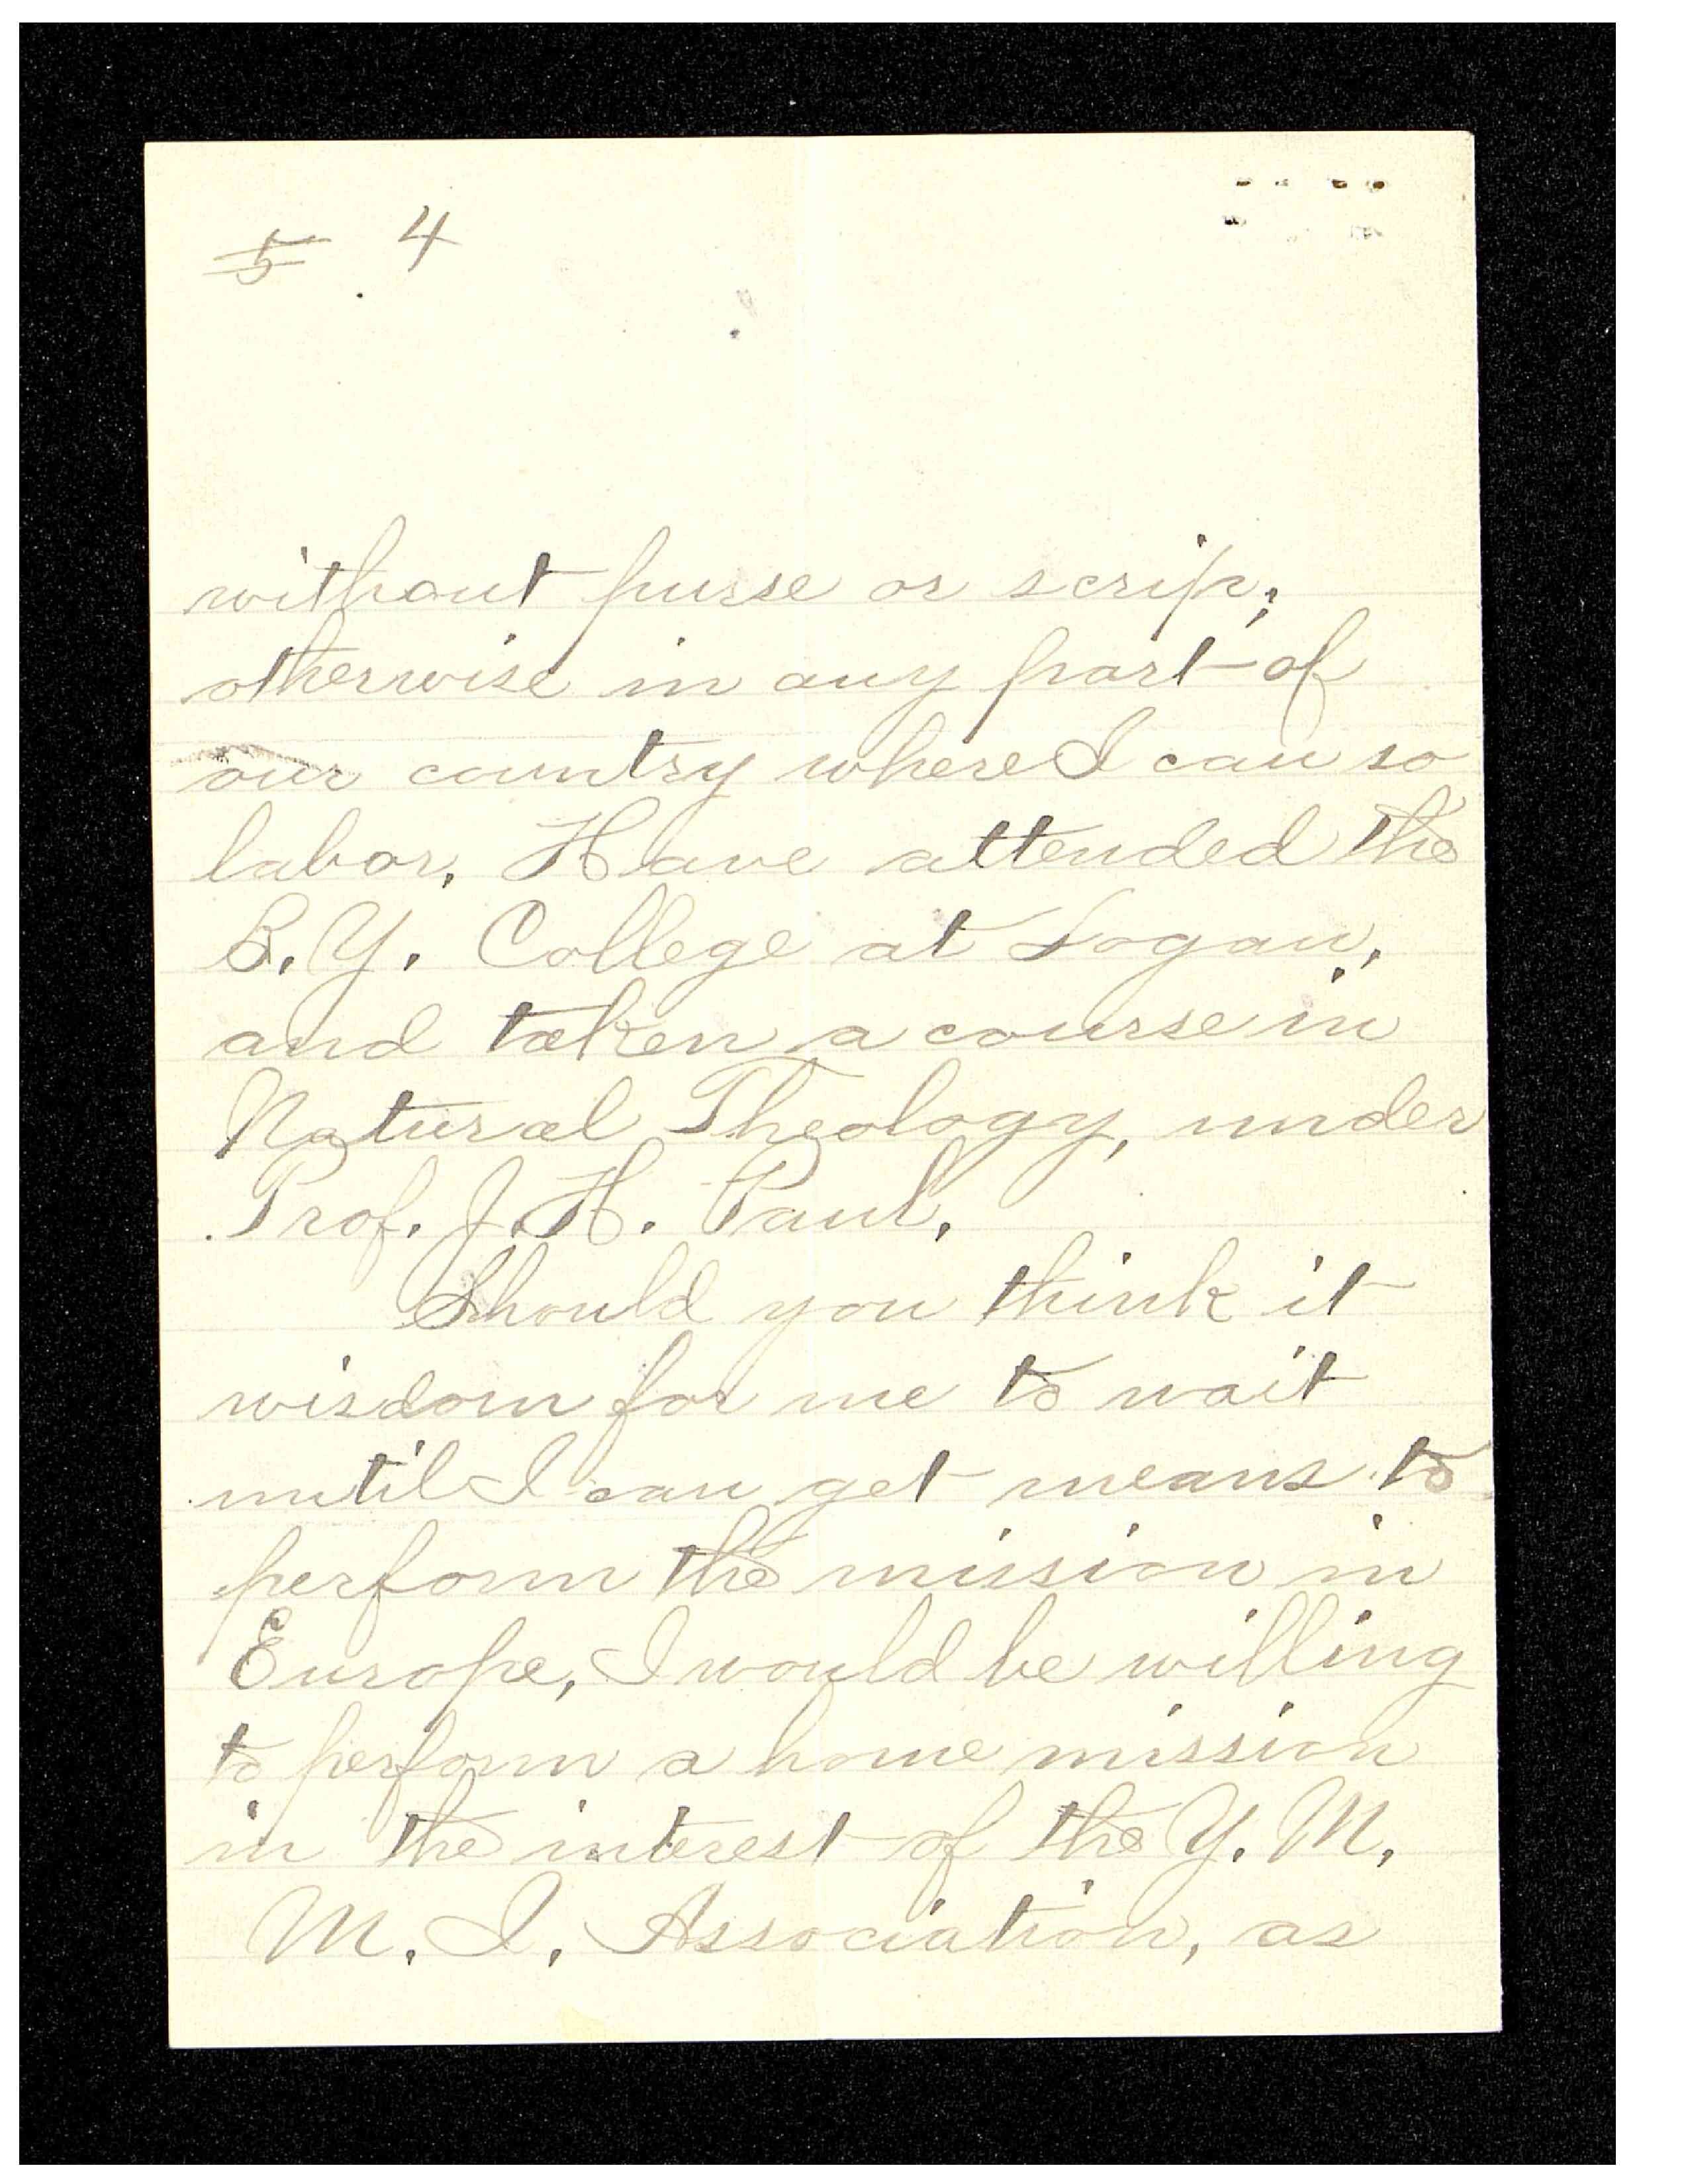 5 4
without purse or scrip;
otherwise in any part of
our country where I can so
labor. Have attended the
B. Y. College at Logan,
and taken a course in
Natural Theology, under
Prof. J. H. Paul.
Should you think it
wisdom for me to wait
until I can get means to
perform the mission in
Europe, I would be willing
to perform a home mission
in the interest of the Y. M.
M. I. Association, as